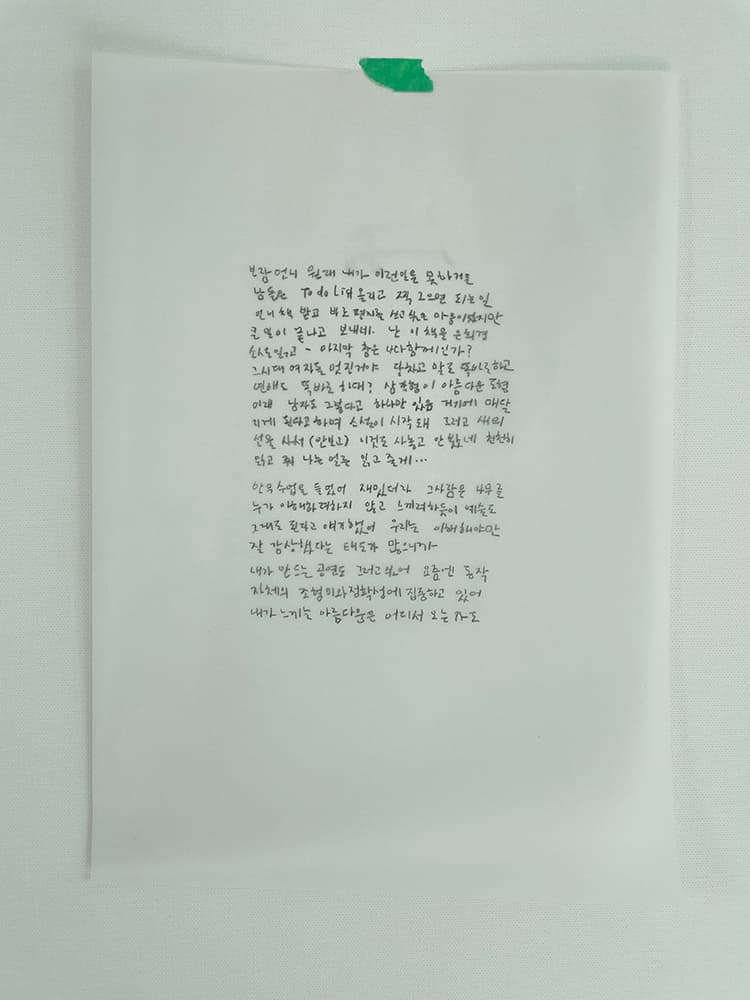 보람언니 원래 내가 이런일을 못하거든
남들은 To do List 올리고 쫙 그으면 되는일
언니 책 받고 바로 편지를 쓰고 싶은 마음이었지만
큰 일이 끝나고 보내네. 난 이 책을 은희경
소설 읽고 - 마지막 춤은 나와 함께인가?
그시대 여자들 멋진거야 당차고 말도 똑바로하고
연애도 똑바로 하대? 삼각형이 아름다운 도형
이래 남자도 그렇다고 하나만 있음 거기에 매달
리게 된다고하며 소설이 시작돼 그러고 새의
선물 사서 (안보고) 이것도 사놓고 안 봤네 천천히
읽고 줘 나는 얼른 읽고 줄게...
수업을 들었어 재밌더라 그사람은 나무를
누가 이해하려하지 않고 느끼려하듯이 예술도
그대로 된다고 얘기했어 우리는 이해해야만
잘 감상했다는 태도가 많으니까
내가 만드는 공연도 그러고있어 요즘엔 동작
자체의 조형미와 정확성에 집중하고 있어
내가 느끼는 아름다움은 어디서 오는가도